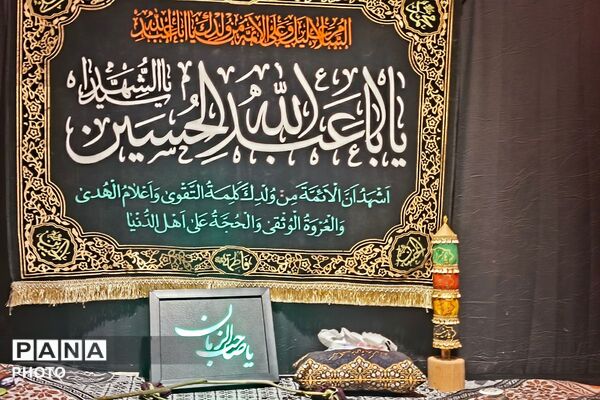 السلام علیک وعلی الائمة من ولدک یا اباعبدالله
یا ابا عبدالله الحسین
ایها الشهید
اشهد ان الائمة من ولدك كلمة التقوی واعلام الهدی
والعروة الوثقی والحجة علی اهل الدنیا
فاطمة
یا صاحب الزمان
PANA
PHOTO